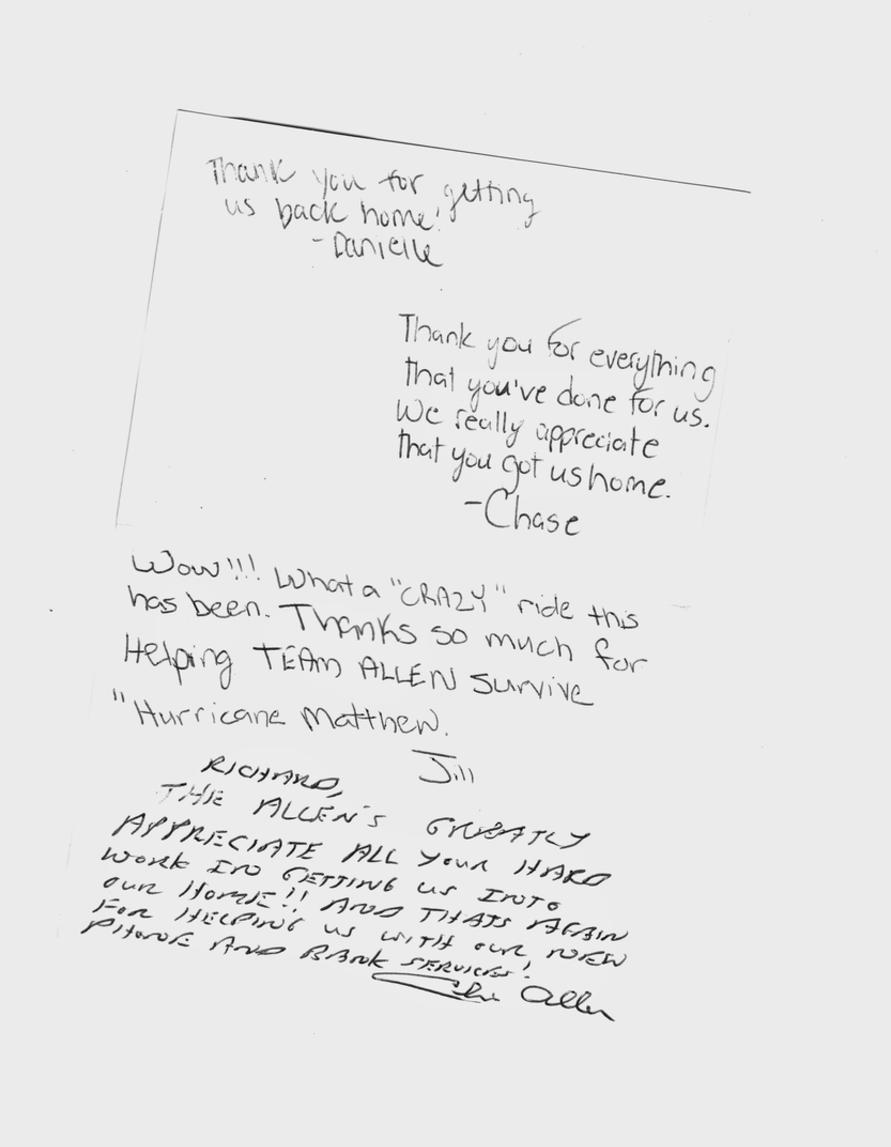 Thank you for getting
us back home!
-Danielle
Thank you for everything
that you've done for us.
We really appreciate
that you got us home.
-Chase
Wow!!! What a "CRAZY" ride this
has been. Thanks so much for
Helping TEAM ALLEN Survive
"Hurricane Matthew.
Jill
RICHARD,
THE ALLEN'S GREATLY
APPRECIATE ALL YOUR HARD
WORK IN GETTING US INTO
OUR HOME!! AND THATS AGAIN
FOR HELPING US WITH OUR NEW
PHONE AND BANK SERVICES!
Allen